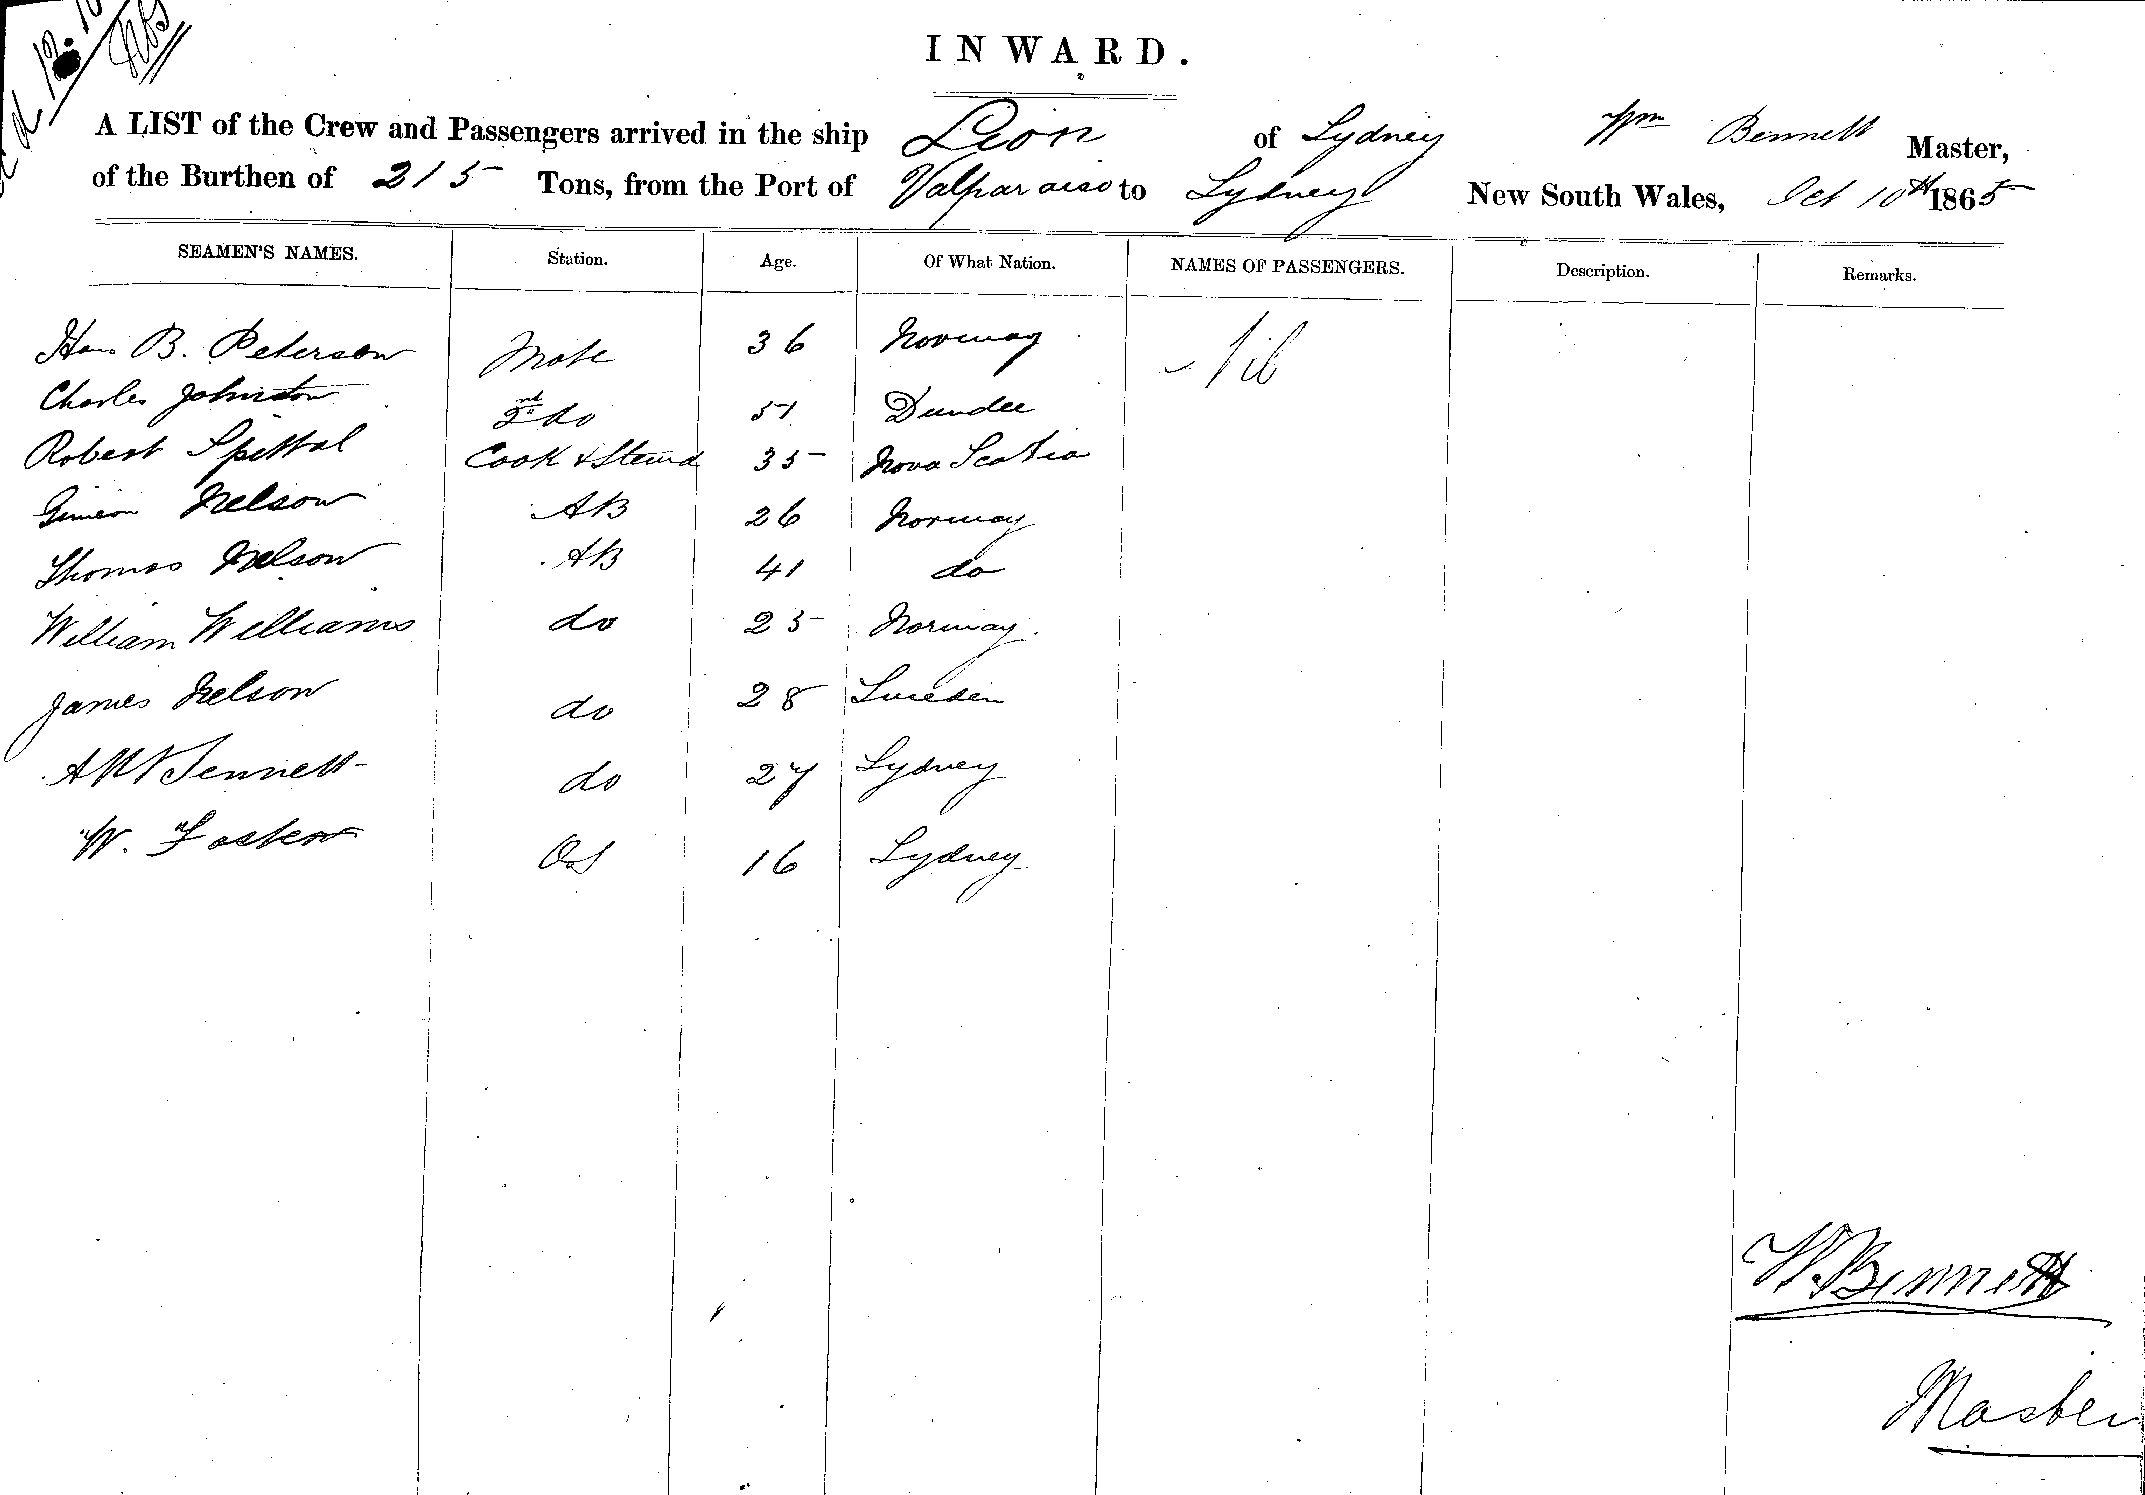 INWARD.
A LIST of the Crew and Passengers arrived in the ship Lion of Sydney Wm Bennett Master,
of the Burthen of 215 Tons, from the Port of Valparaiso to Sydney New South Wales, Oct 10th 1865
SEAMEN'S NAMES. Station. Age. Of What Nation. NAMES OF PASSENGERS. Description. Remarks.
Hans B. Peterson Mate 36 Norway Nil
Charles Johnston 2nd do 51 Dundee
Robert Spittal Cook & Stewd 35 Nova Scotia
Simeon Nelson AB 26 Norway
Thomas Nelson AB 41 do
William Williams do 25 Norway.
James Nelson do 28 Sweden
Bennett do 27 Sydney
W. Foster OS 16 Sydney
W. Bennett
Master